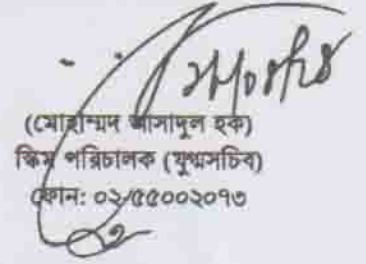 (মোহাম্মদ আসাদুল হক)
স্কিম পরিচালক (যুগ্মসচিব)
ফোন: ০২/৫৫০০২০৭৩